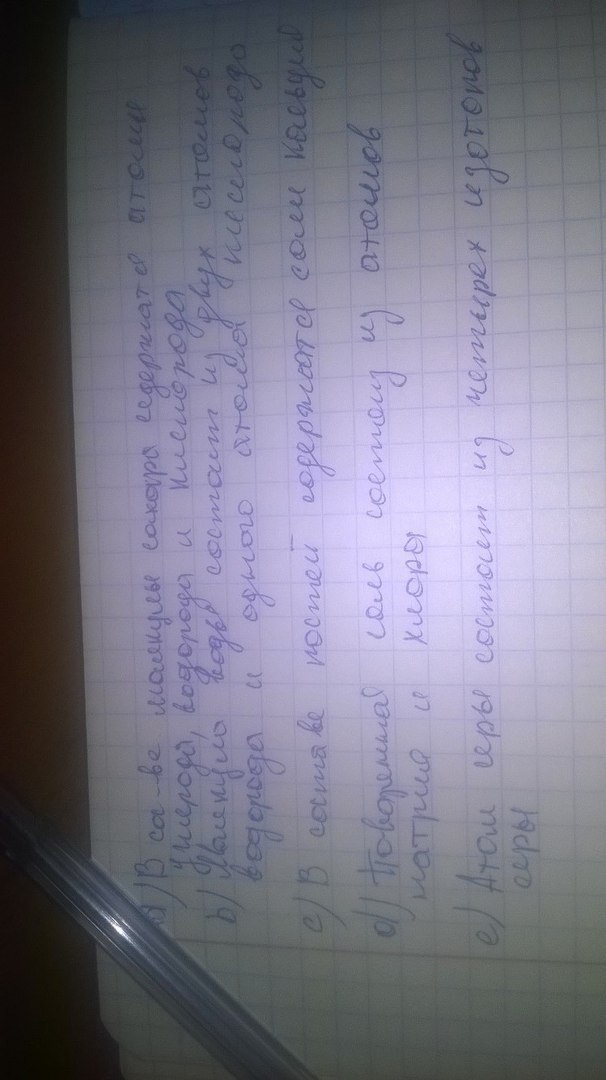 a) В со-ве молекулы сахара содержатся атомы
углерода, водорода и кислорода
b) Молекула воды состоит из двух атомов
водорода и одного атома кислорода
c) В составе костей содержатся соли кальция
d) Поваренная соль состоит из атомов
натрия и хлора
e) Атом серы состоит из четырех изотопов
серы